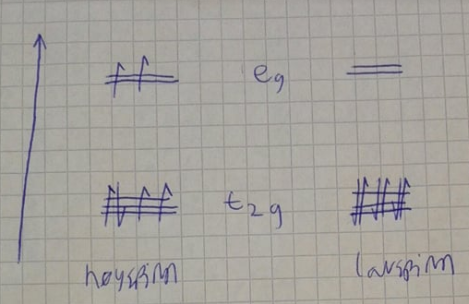 eg
t2g
høyspinn lavspinn